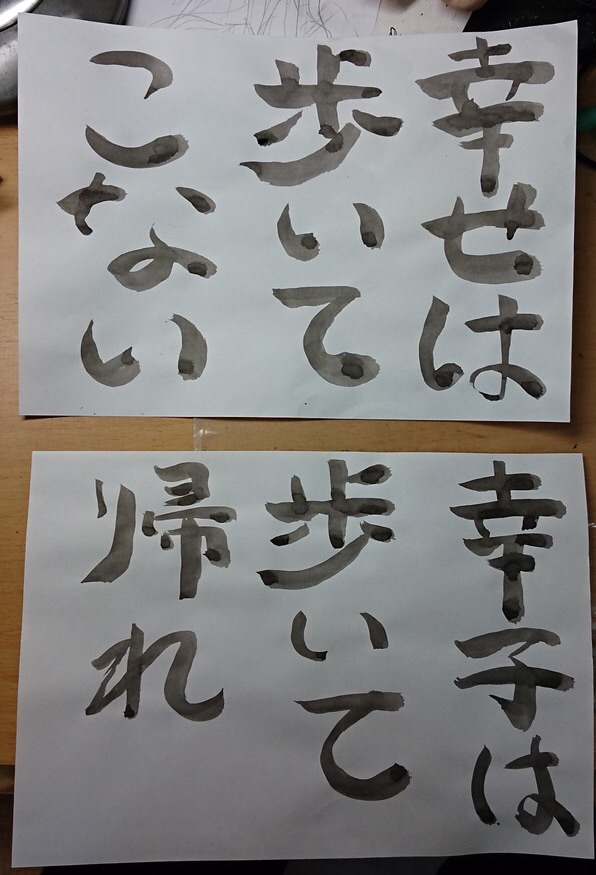 幸せは
歩いて
こない
幸子は
歩いて
帰れ